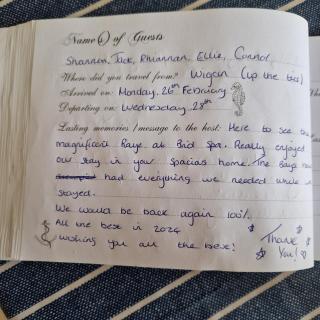 Name(s) of Guests
Shannon, Jack, Rhiannan, Ellie, Connol
Where did you travel from? Wigan (up the
Arrived on: Monday, 26th February
Departing on: Wednesday, 28th
Lasting memories / message to the host: Here to see the
magnificent Faye at Bnd Spa. Really enjoyed
our stay in your spacias home. The Bays
had everything we needed while
stayed.
We would be back again 100%.
All the best in 2024
wishing you all the best!
Thank
You!